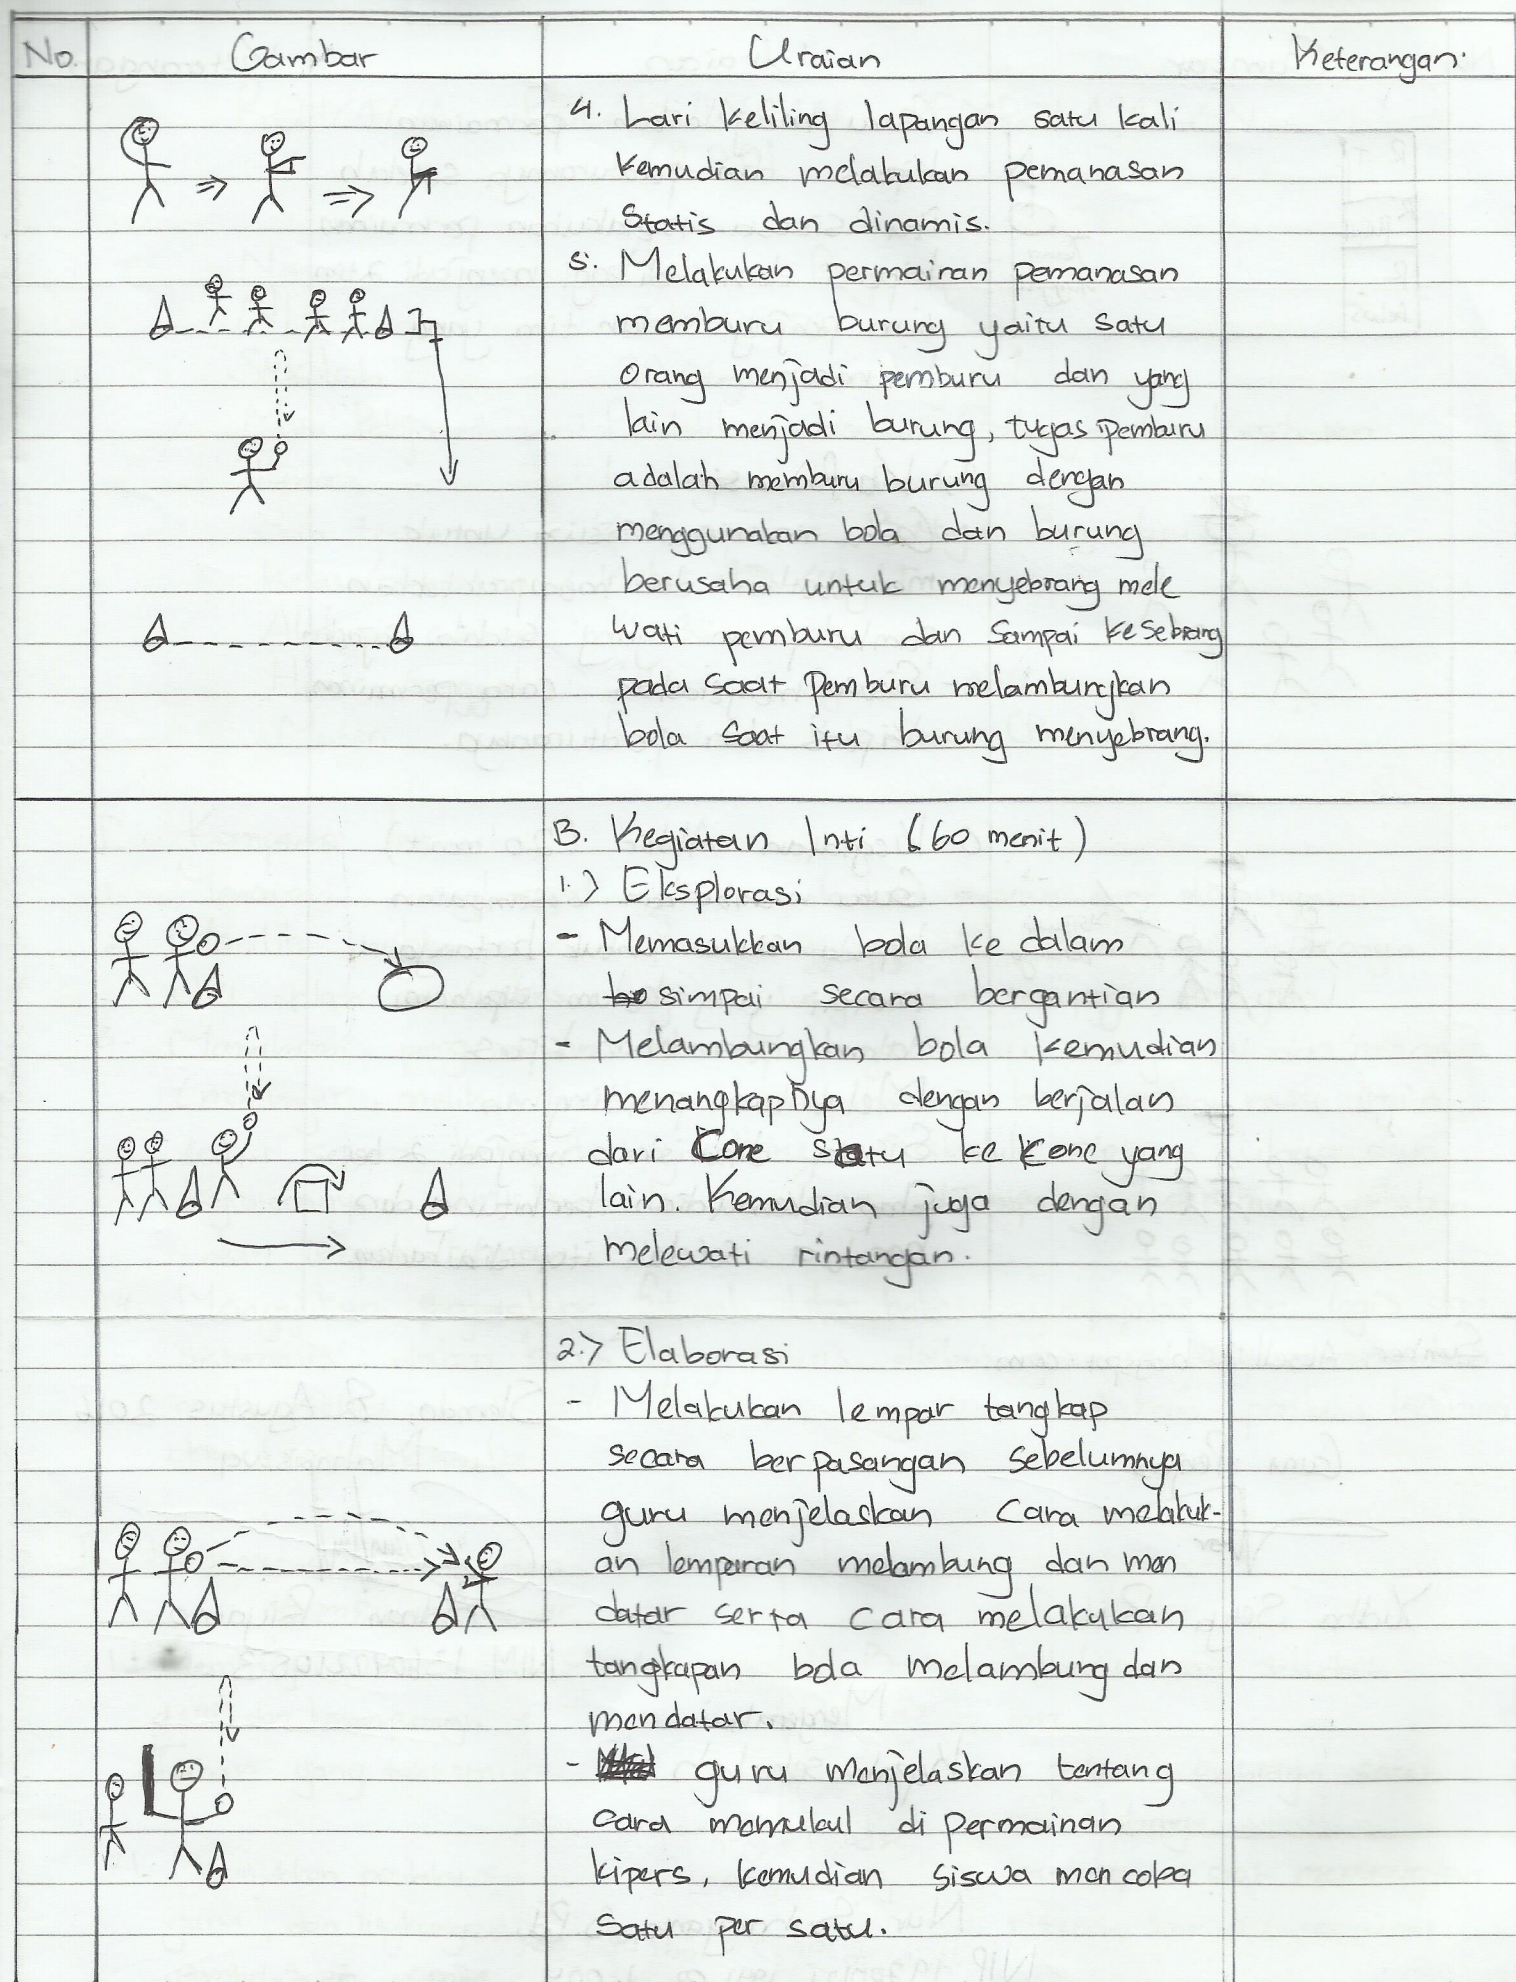 No. Gambar Uraian Keterangan.
4. Lari keliling lapangan satu kali
kemudian melakukan pemanasan
Statis dan dinamis.
5. Melakukan permainan pemanasan
memburu burung yaitu satu
orang menjadi pemburu dan yang
lain menjadi burung, tugas pemburu
adalah memburu burung dengan
menggunakan bola dan burung
berusaha untuk menyebrang mele
wati pemburu dan sampai kesebrang
pada saat pemburu melambungkan
bola saat itu burung menyebrang.
B. Kegiatan Inti (60 menit)
1.) Eksplorasi
- Memasukkan bola ke dalam
simpai secara bergantian
- Melambungkan bola kemudian
menangkapnya dengan berjalan
dari Cone satu ke Cone yang
lain. Kemudian juga dengan
melewati rintangan.
2.) Elaborasi
- Melakukan lempar tangkap
secara berpasangan sebelumnya
guru menjelaskan cara melakuk-
an lemparan melambung dan men
datar serta cara melakukan
tangkapan bola melambung dan
mendatar.
- guru menjelaskan tentang
cara memukul di permainan
kipers, kemudian siswa mencoba
satu per satu.